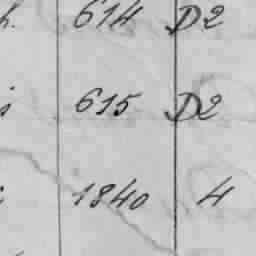 h. 614 D2
615 D2
1840 4